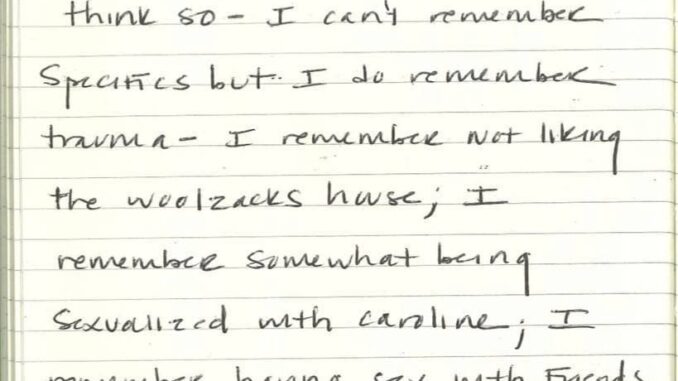 think so - I can't remember
Specifics but I do remember
trauma - I remember not liking
the woolzacks house; I
remember somewhat being
sexualized with caroline; I
remember having sex with friends